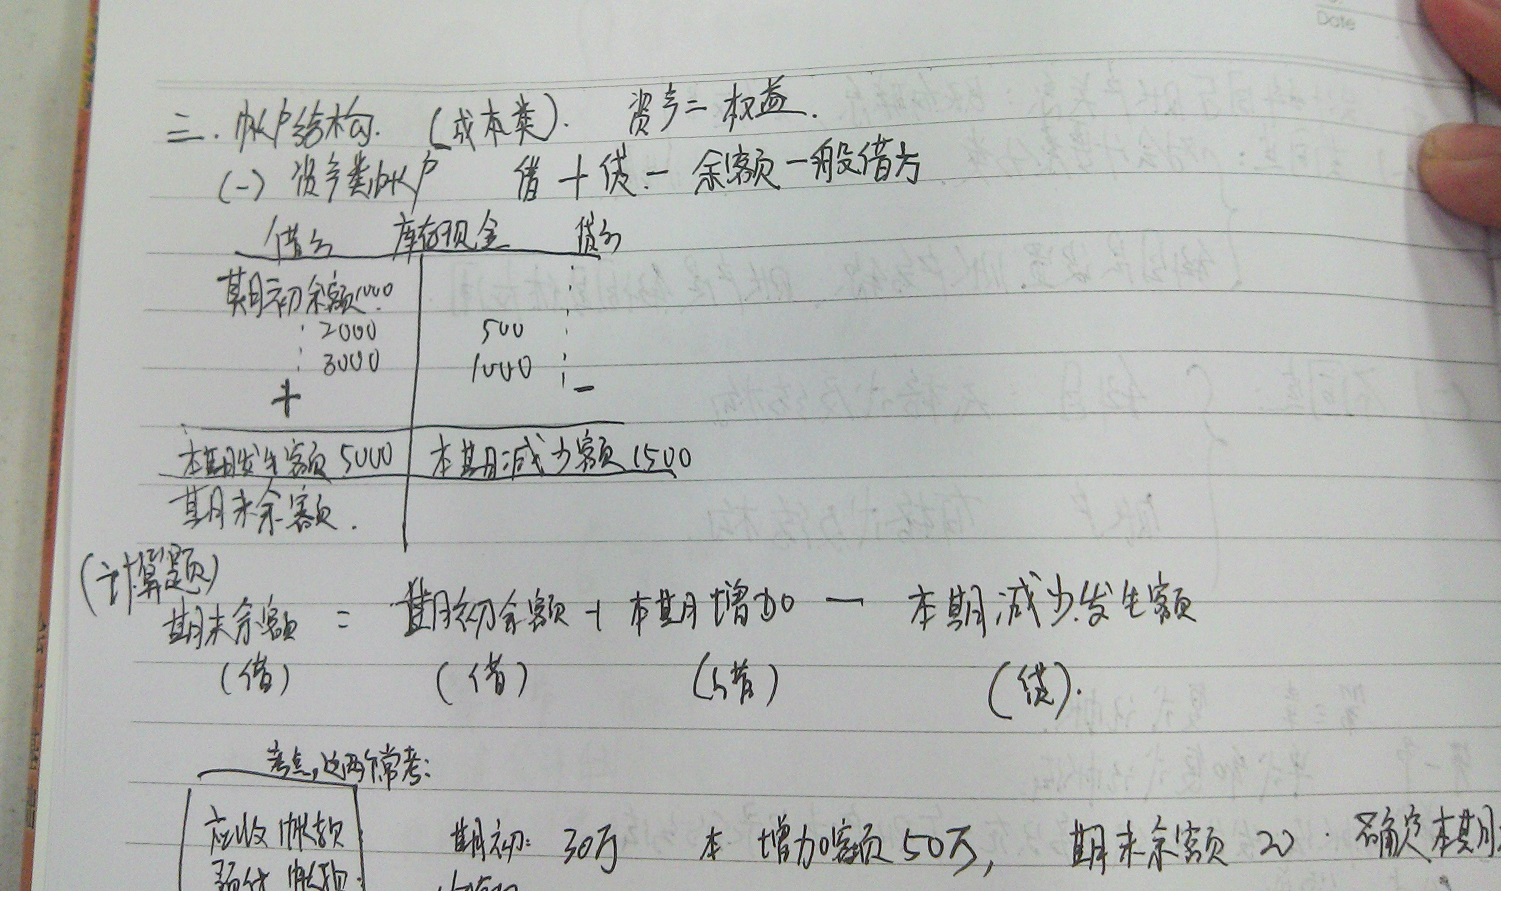 Date
二.帐户结构.(成本类). 资产=权益.
(一)资产类帐户 借+贷- 余额一般借方
借方 库存现金 贷方
期初余额1000
2000 500
3000 1000
+ -
本期发生额5000 本期减少额1500
期末余额.
(计算题)
期末余额 = 期初余额+本期增加 — 本期减少发生额
(借) (借) (借) (贷).
考点,这两个常考:
应收帐款 期初: 30万 本 增加额50万, 期末余额20. 确定本期
预付帐款